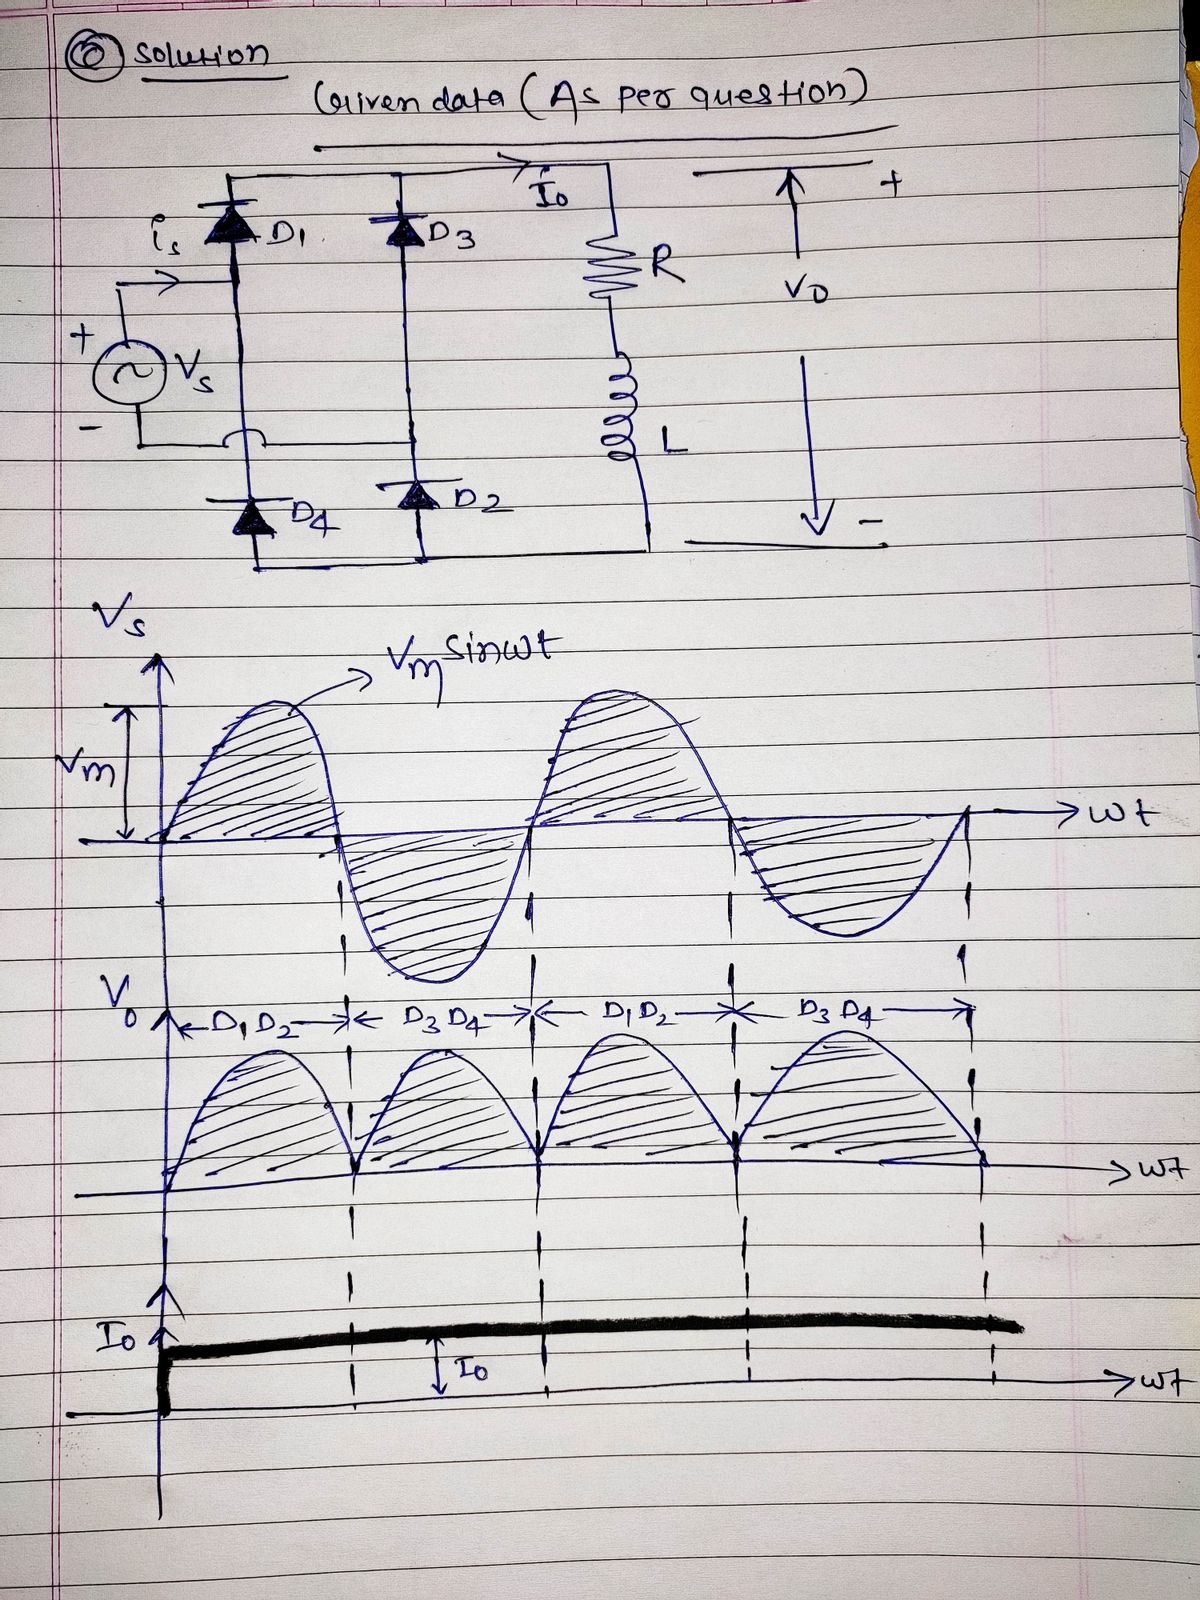 ⑥ Solution
Given data (As per question)
I₀
+
iₛ
D1
D3
R
V0
+
Vₛ
-
L
D4
D2
-
Vₛ
Vm sinωt
Vm
ωt
V₀
D₁ D₂
D₃ D₄
D₁ D₂
D₃ D₄
ωt
I₀
I₀
ωt